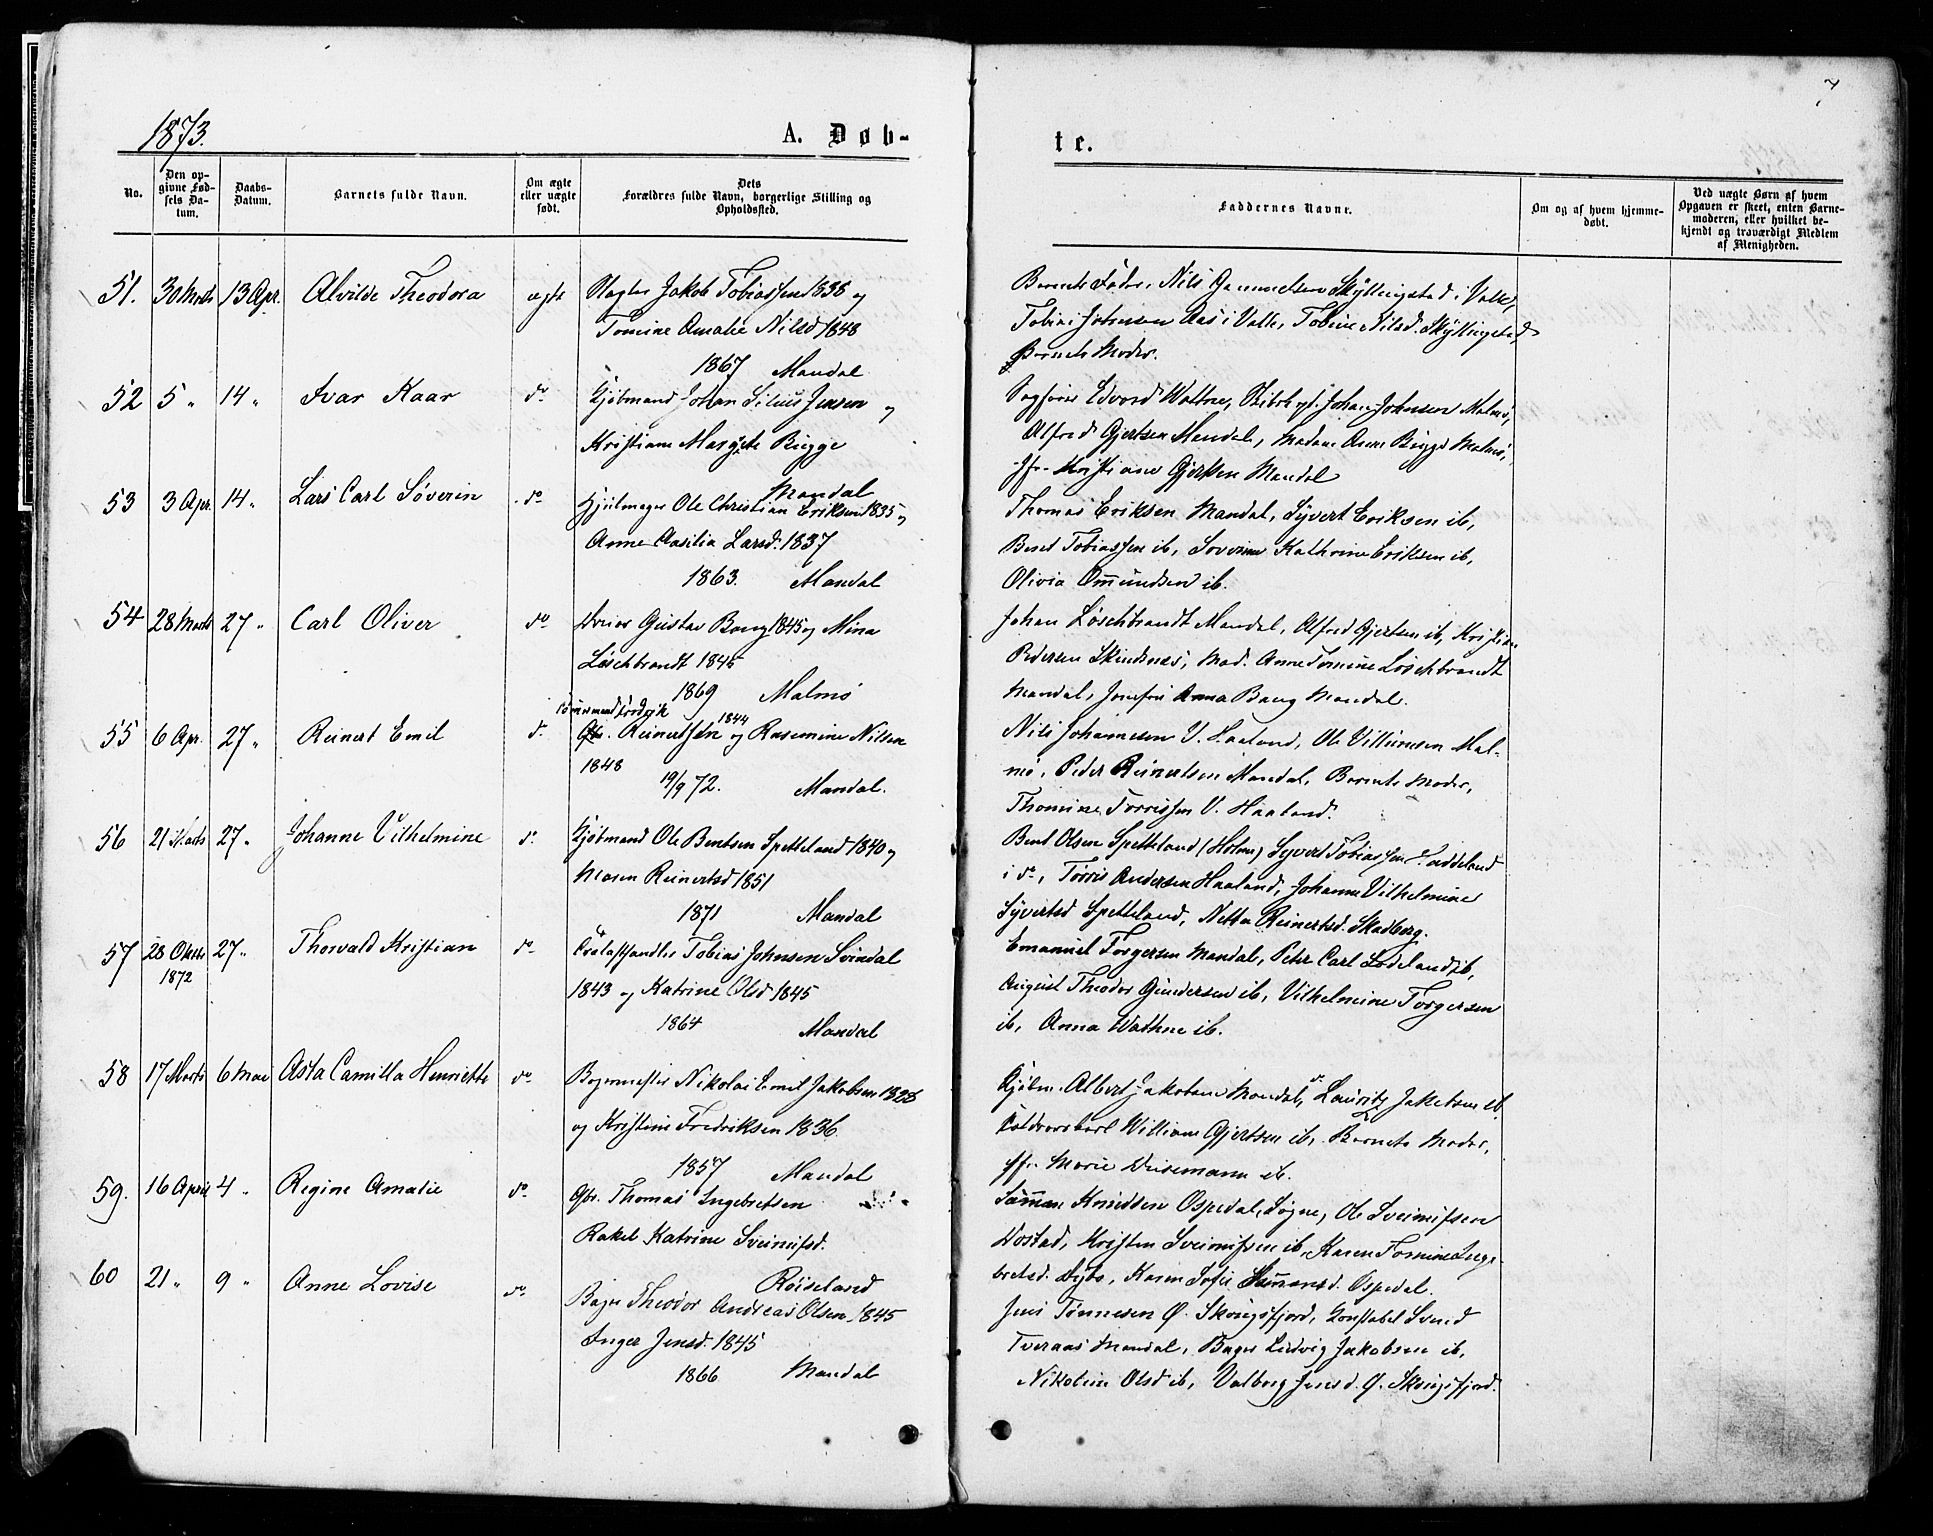 1873.
A. Døb-
No.
Den op-
givne Fød-
sels Da-
tum.
Daabs-
Datum.
Barnets fulde Navn.
Om ægte
eller uægte
født.
Dets
Forældres fulde Navn, borgerlige Stilling og
Opholdssted.
51. 30 Marts 13 Apr. Alvilde Theodora ægte Slagter Jakob Tobiassen 1838 og
Tomine Amalie Nilsd 1848
1867 Mandal
52 5 " 14 " Ivar Kaar do Kjøbmand Johan Silius Jensen og
Kristiane Margrete Bugge
Mandal
53 3 Apr. 14 " Lars Carl Søverin do Hjulmager Ole Christian Eriksen 1835 og
Anne Aasilia Larsd. 1837
1863. Mandal
54 28 Marts 27 " Carl Oliver do Gustav Bang 1845 og Mina
Løschbrandt 1845
1869 Malmø
55 6 Apr. 27 " Reinert Emil do Tømmermand Fredrik
Reinertsen 1844 og Rasmine Nilsen
1848
19/9 72. Mandal.
56 21 Marts 27 " Johanne Vilhelmine do Kjøbmand Ole Bentsen Spetteland 1840 og
Maren Reinertsd 1851
1871 Mandal
57 28 Oktbr 27 " Thorvald Kristian do Tobias Johnsen Svindal
1872
1843 og Katrine Olsd 1845
1864 Mandal
58 17 Marts 6 Mai Asta Camilla Henriette do Bagermester Nikolai Emil Jakobsen 1828
og Kristine Fredriksen 1836
1857 Mandal
59. 16 April 4 " Regine Amalie do Gbr. Thomas Ingebretsen
Rakel Katrine Sveinufsd.
Røiseland
60 21 " 9 " Anne Lovise do Bager Theodor Andreas Olsen 1845
Inger Jensd. 1845
1866 Mandal
7
te.
Faddernes Navne.
Om og af hvem hjemme-
døbt.
Ved uægte Børn af hvem
Opgaven er skeet, enten Barne-
moderen, eller hvilket be-
kjendt og troværdigt Medlem
af Menigheden.
Barnets Fader, Nils Gunmundsen Skyllingstad i Valle,
Tobias Johnsen Aas i Valle, Tobine Nilsd. Skyllingstad
Barnets Moder.
Sagfører Edvard Wattne, Johan Johnsen Malmø,
Alfred Gjertsen Mandal, Madam Anne Bugge Malmø,
Jfr. Kristiane Gjertsen Mandal
Thomas Eriksen Mandal, Syvert Eriksen ib,
Bent Tobiassen ib, Sovrine Kathrine Eriksen ib,
Olivia Omundsen ib.
Johan Løschbrandt Mandal, Alfred Gjertsen ib, Kristian
Pedersen Skindsnes, Mad. Anne Tomine Løschbrandt
Mandal, Jomfru Anna Bang Mandal.
Nils Johannesen V. Haaland, Ole Villumsen Mal-
mø, Peder Reinertsen Mandal, Barnets Moder,
Thomine Torrissen V. Haaland.
Bent Olsen Spetteland (Holme) Syvert Tobiassen Faddeland
i do, Torris Andersen Haaland, Johanne Vilhelmine
Syvertsd Spetteland, Netta Reinertsd. Skadberg.
Emanuel Torgersen Mandal, Peter Carl Lodeland ib,
August Theodor Gundersen ib, Vilhelmine Torgersen
ib, Anna Wathne ib.
Kjøbm. Albert Jakobsen Mandal, do Lauritz Jakobsen ib
William Gjertsen ib, Barnets Moder,
Jfr. Marie Weisemann ib.
Samme Knudsen Ospedal, Søgne, Ole Sveinufsen
Kristen Sveinufsen ib, Karen Tomine Inge-
bretsd. Dybo, Karen Sofie Sammesd. Ospedal.
Jens Tønnesen Ø. Skougsfjord, Konstabel Svend
Tveraas Mandal, Bager Ludvig Jakobsen ib,
Nikoline Olsd ib, Valborg Jensd. Ø. Skougsfjord.